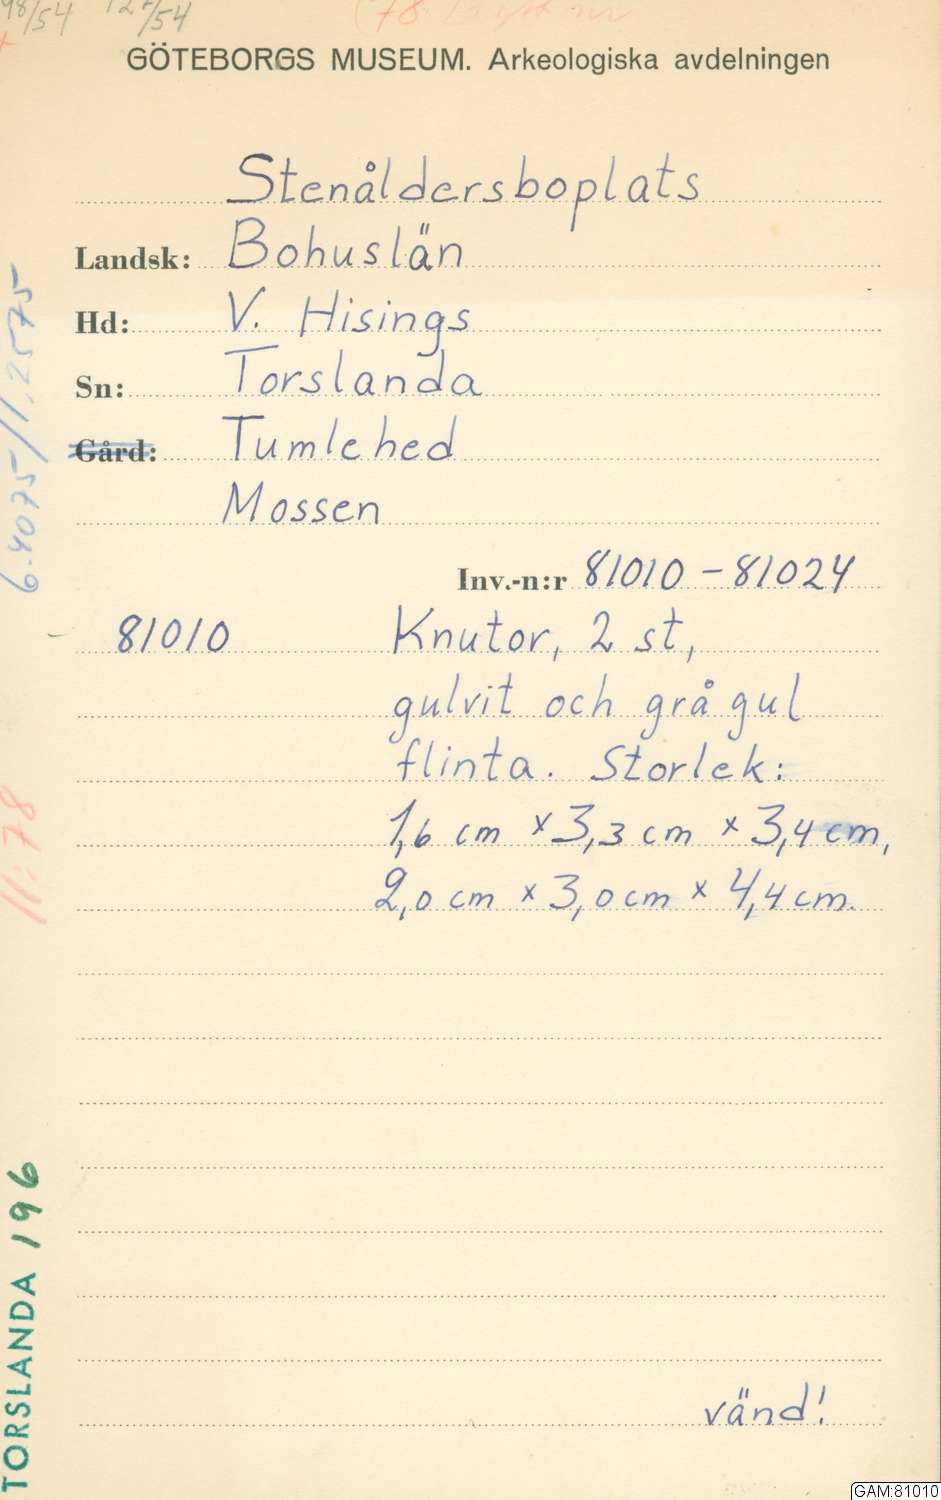 98/54 127/54
GÖTEBORGS MUSEUM. Arkeologiska avdelningen
Stenåldersboplats
Landsk: Bohuslän
Hd: V. Hisings
Sn: Torslanda
Gård: Tumlehed
Mossen
Inv.-n:r 81010 - 81024
81010 Knutor, 2 st,
gulvit och grågul
flinta. Storlek:
1,6 cm x 3,3 cm x 3,4 cm,
2,0 cm x 3,0 cm x 4,4 cm.
vänd!
6.4075/1.2575
11:78
TORSLANDA 196
GAM:81010